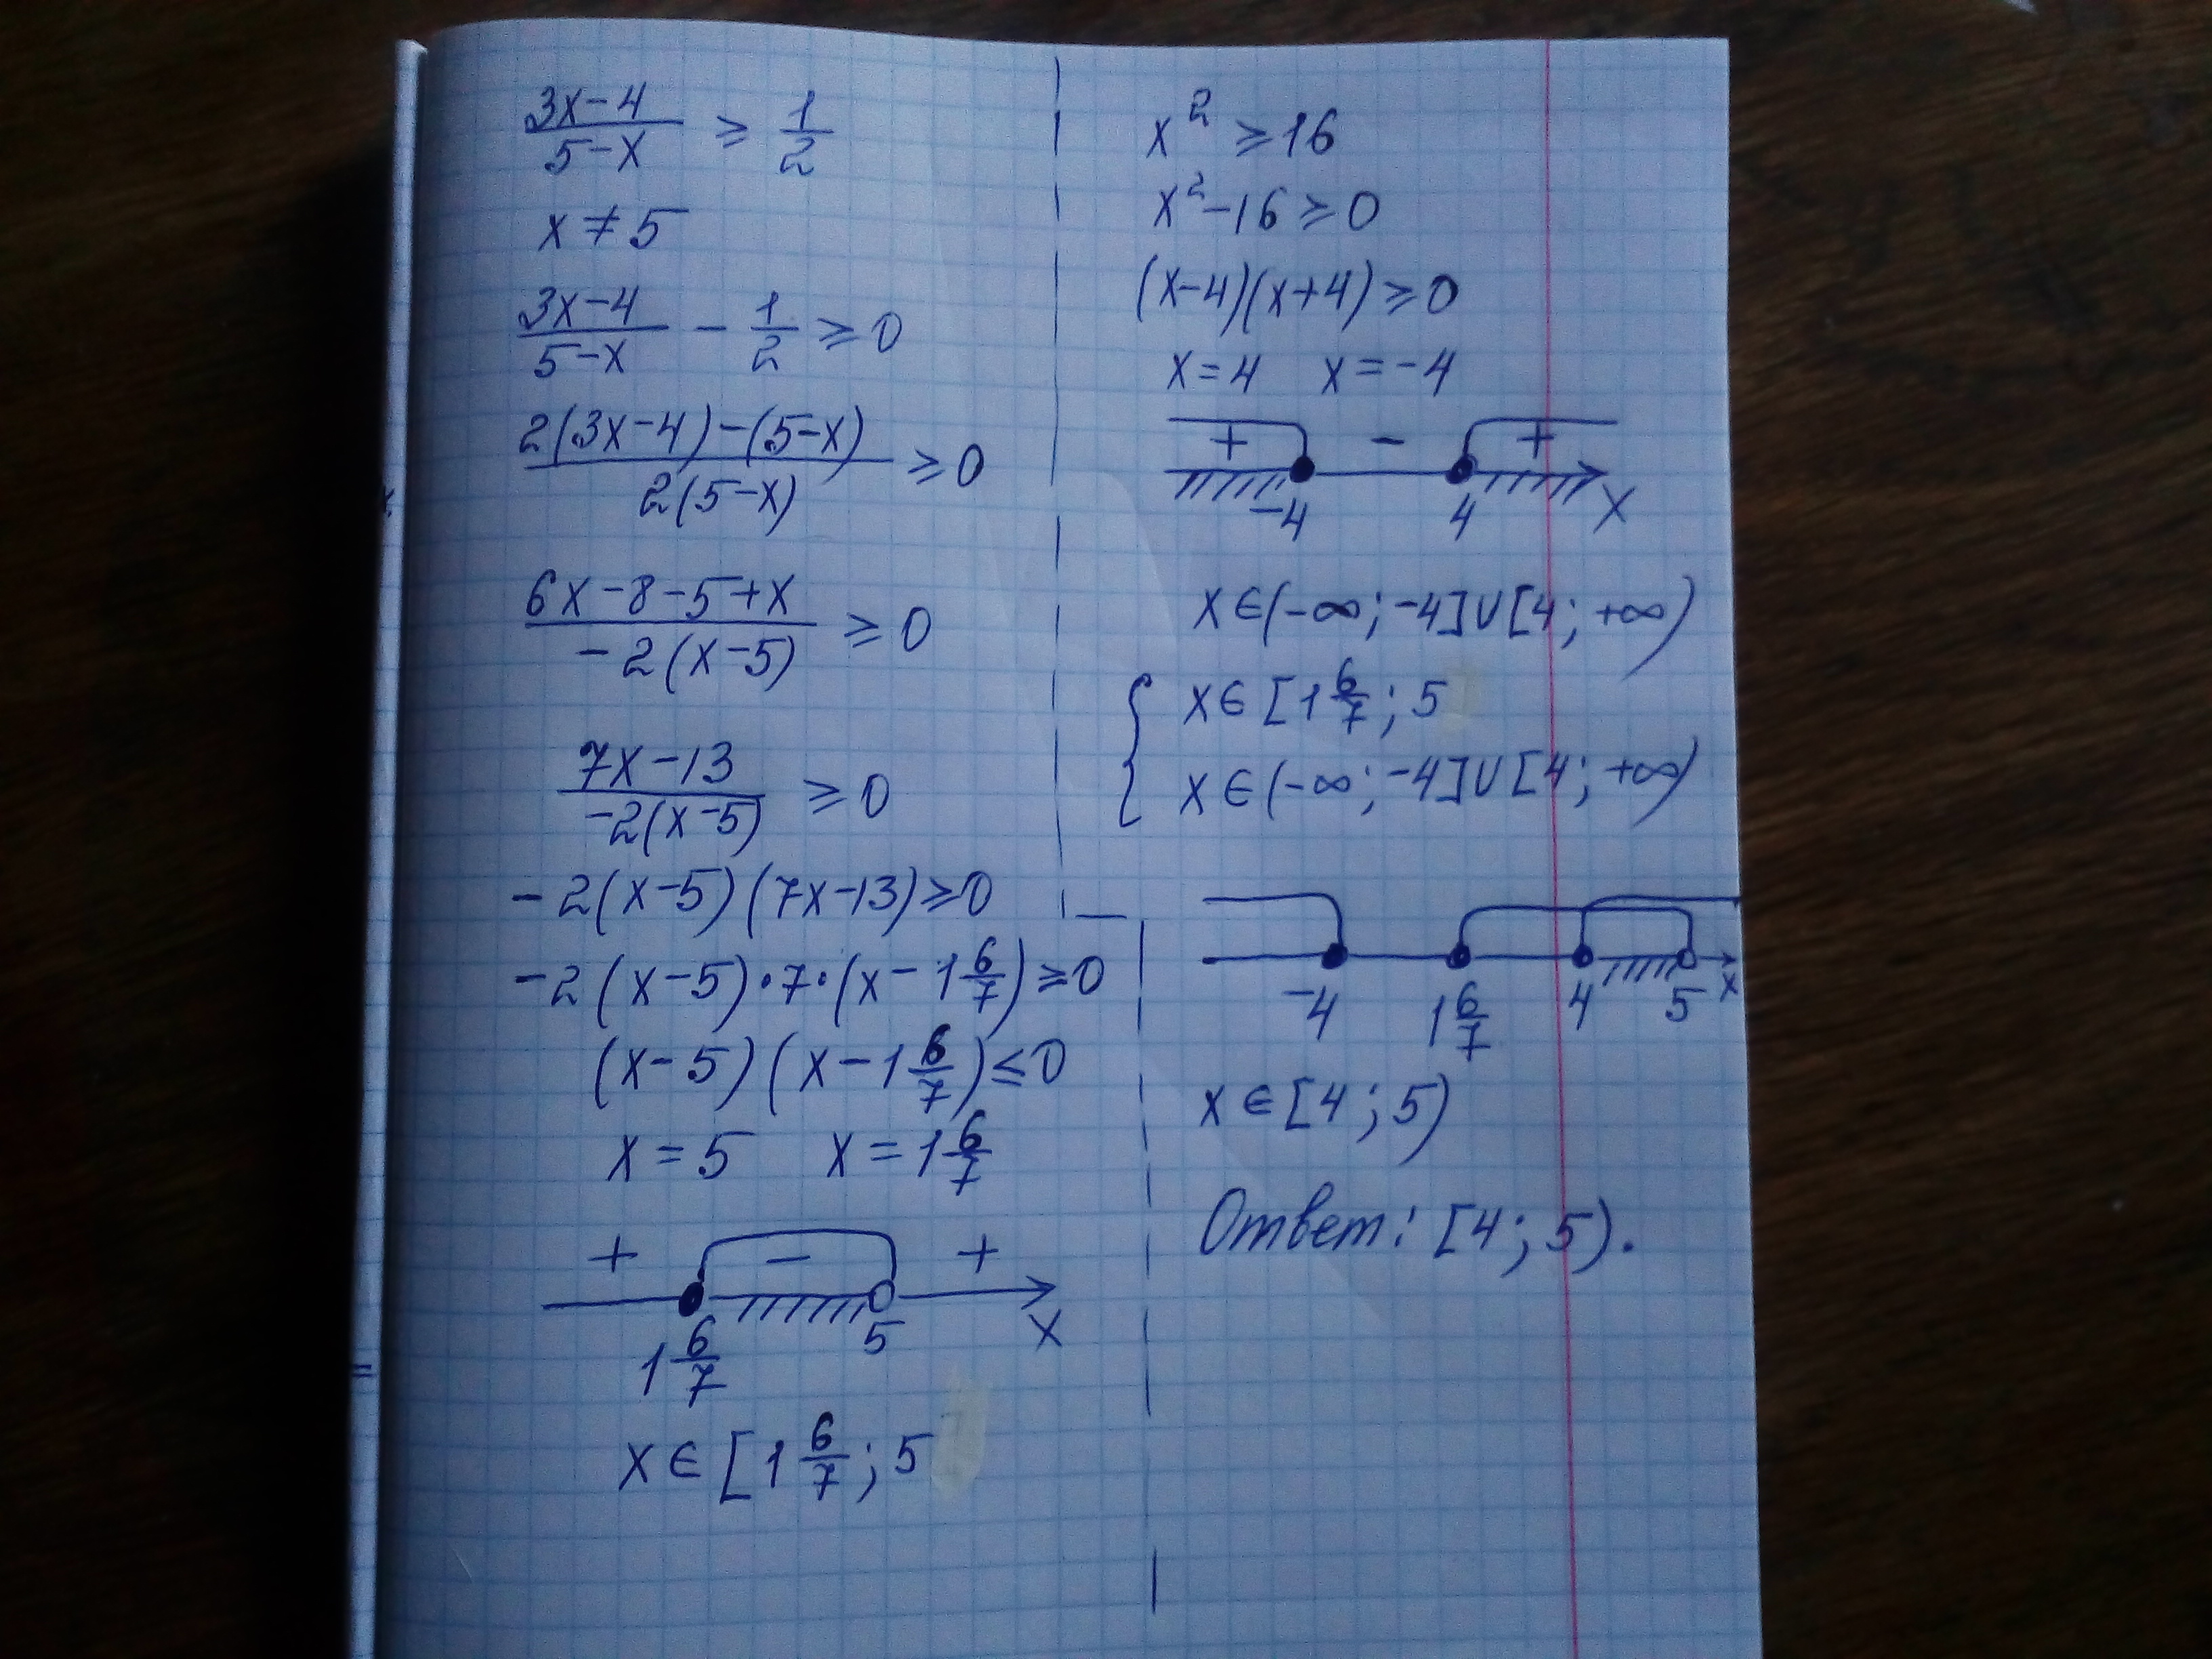 (3x-4)/(5-x) ≥ 1/2
x ≠ 5
(3x-4)/(5-x) - 1/2 ≥ 0
(2(3x-4)-(5-x))/(2(5-x)) ≥ 0
(6x-8-5+x)/(-2(x-5)) ≥ 0
(7x-13)/(-2(x-5)) ≥ 0
-2(x-5)(7x-13) ≥ 0
-2(x-5)·7·(x-1 6/7) ≥ 0
(x-5)(x-1 6/7) ≤ 0
x=5 x=1 6/7
+ - +
1 6/7 5 x
x ∈ [1 6/7; 5
x² ≥ 16
x²-16 ≥ 0
(x-4)(x+4) ≥ 0
x=4 x=-4
+ - +
-4 4 x
x ∈ (-∞; -4] ∪ [4; +∞)
{ x ∈ [1 6/7; 5
x ∈ (-∞; -4] ∪ [4; +∞)
-4 1 6/7 4 5 x
x ∈ [4; 5)
Ответ: [4; 5).